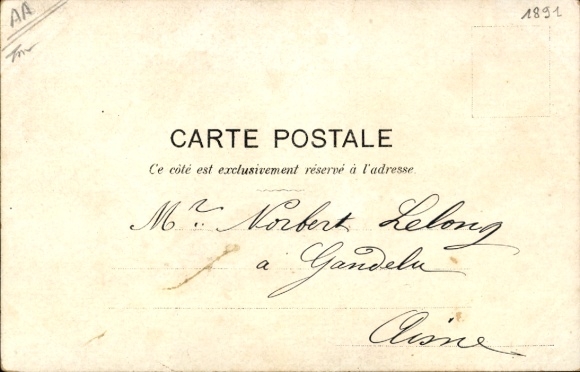 AA
1891
CARTE POSTALE
Ce côté est exclusivement réservé à l'adresse.
Mr. Norbert Lelong
a Gandelu
Aisne